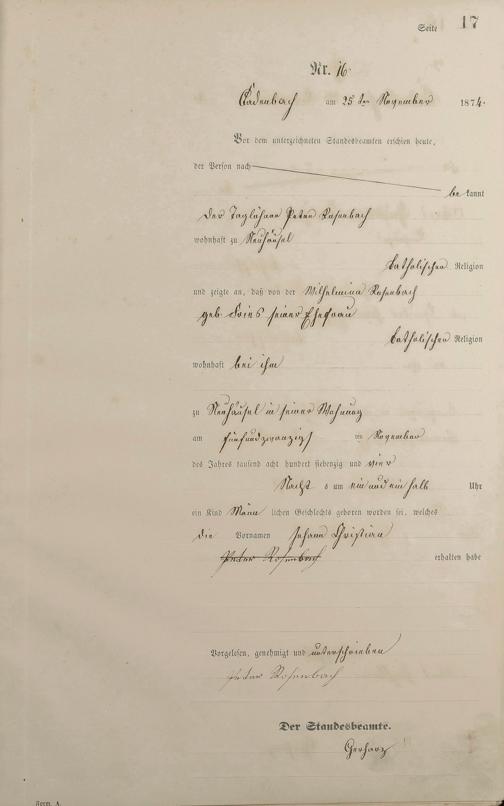 Seite 17
Nr. 16.
Cadenbach am 25ten November 1874.
Vor dem unterzeichneten Standesbeamten erschien heute,
der Person nach
be kannt
der Taglöhner Peter Rosenbach
wohnhaft zu Neuhäusel
katholischer Religion
und zeigte an, daß von der Wilhelmina Rosenbach
geb. Fries seiner Ehefrau
katholischer Religion
wohnhaft bei ihm
zu Neuhäusel in seiner Wohnung
am fünfundzwanzigs im November
des Jahres tausend acht hundert siebenzig und vier
Nacht s um ein und ein halb Uhr
ein Kind Männ lichen Geschlechts geboren worden sei, welches
die Vornamen Johann Christian
Peter Rosenbach erhalten habe
Vorgelesen, genehmigt und unterschrieben
Peter Rosenbach
Der Standesbeamte.
Gerharz
Form. A.